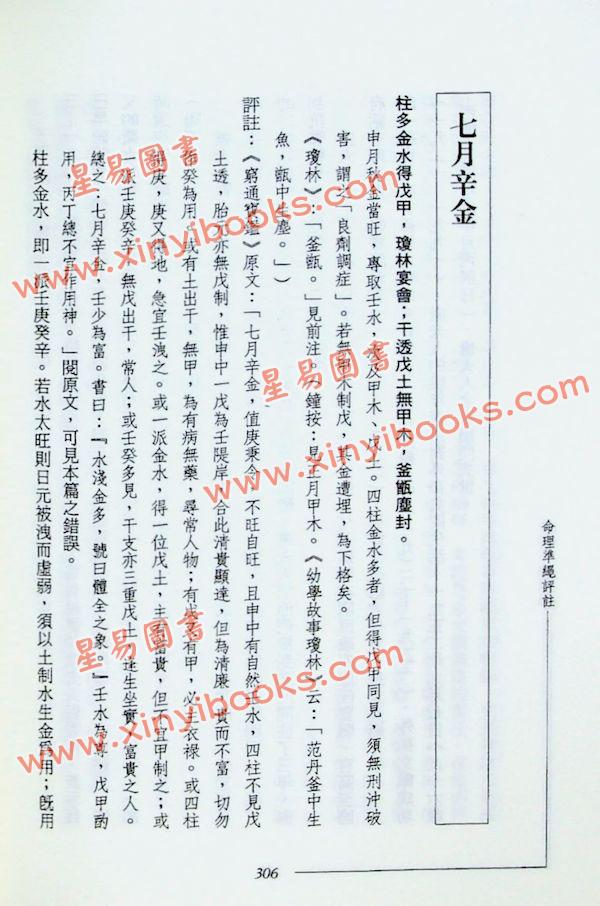 命理準繩評註
七月辛金
柱多金水得戊甲，瓊林宴會；干透戊土無甲木，釜甑塵封。
申月秋金當旺，專取壬水，次及甲木、戊土。四柱金水多者，但得戊甲同見，須無刑沖破
害，謂之「良劑調症」。若無甲木制戊，其金遭埋，為下格矣。
《瓊林》：「釜甑。」見前注。（鐘按：見正月甲木。《幼學故事瓊林》云：「范丹釜中生
魚，甑中生塵。」）
評註：《窮通寶鑑》原文：「七月辛金，值庚秉令，不旺自旺，且申中有自然壬水，四柱不見戊
土透，胎元亦無戊制，惟申中一戊為壬隄岸，合此清貴顯達，但為清廉，貴而不富，切勿
作癸為用。或有土出干，無甲，為有病無藥，尋常人物；有戊又有甲，必主衣祿。或四柱
庚，庚又得地，急宜壬洩之。或一派金水，得一位戊土，主有富貴，但不宜甲制之；或
一派壬庚癸辛，無戊出干，常人；或壬癸多見，干支亦三重戊土，逢生坐實，富貴之人。
總之：七月辛金，壬少為富。書曰：『水淺金多，號曰體全之象。』壬水為尊，戊甲酌
用，丙丁總不宜作用神。」閱原文，可見本篇之錯誤。
柱多金水，即一派壬庚癸辛。若水太旺則日元被洩而虛弱，須以土制水生金為用；既用
306
星易圖書
www.xinyibooks.com
星易圖書
www.xinyibooks.com
星易圖書
www.xinyibooks.com